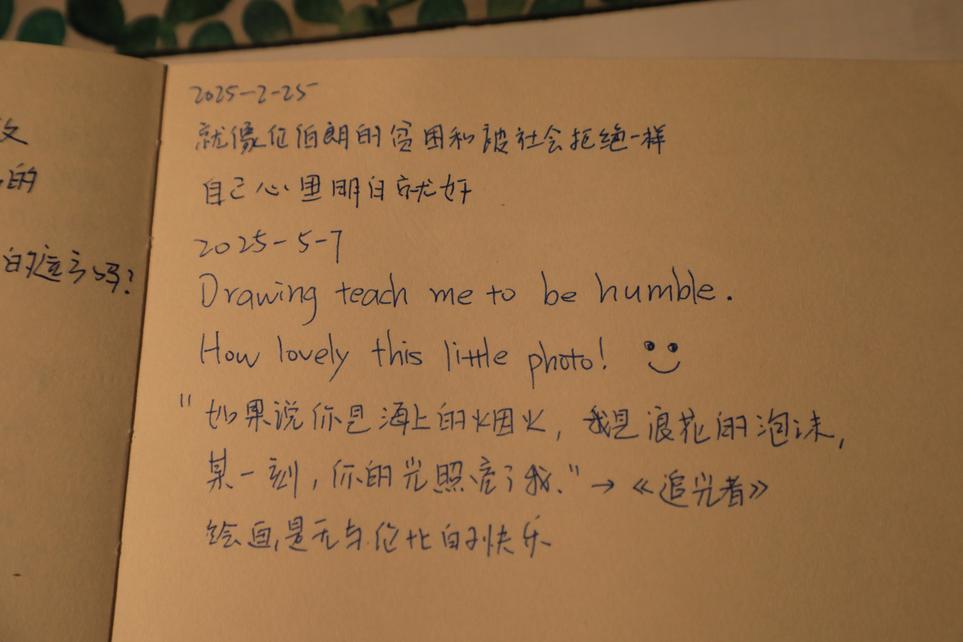 攵
的
的意义吗?
2025-2-25
就像伦伯朗的贫困和被社会拒绝一样
自己心里明白就好
2025-5-7
Drawing teach me to be humble.
How lovely this little photo!
"如果说你是海上的烟火,我是浪花的泡沫,
某一刻,你的光照亮了我."→《追光者》
绘画,是无与伦比的快乐